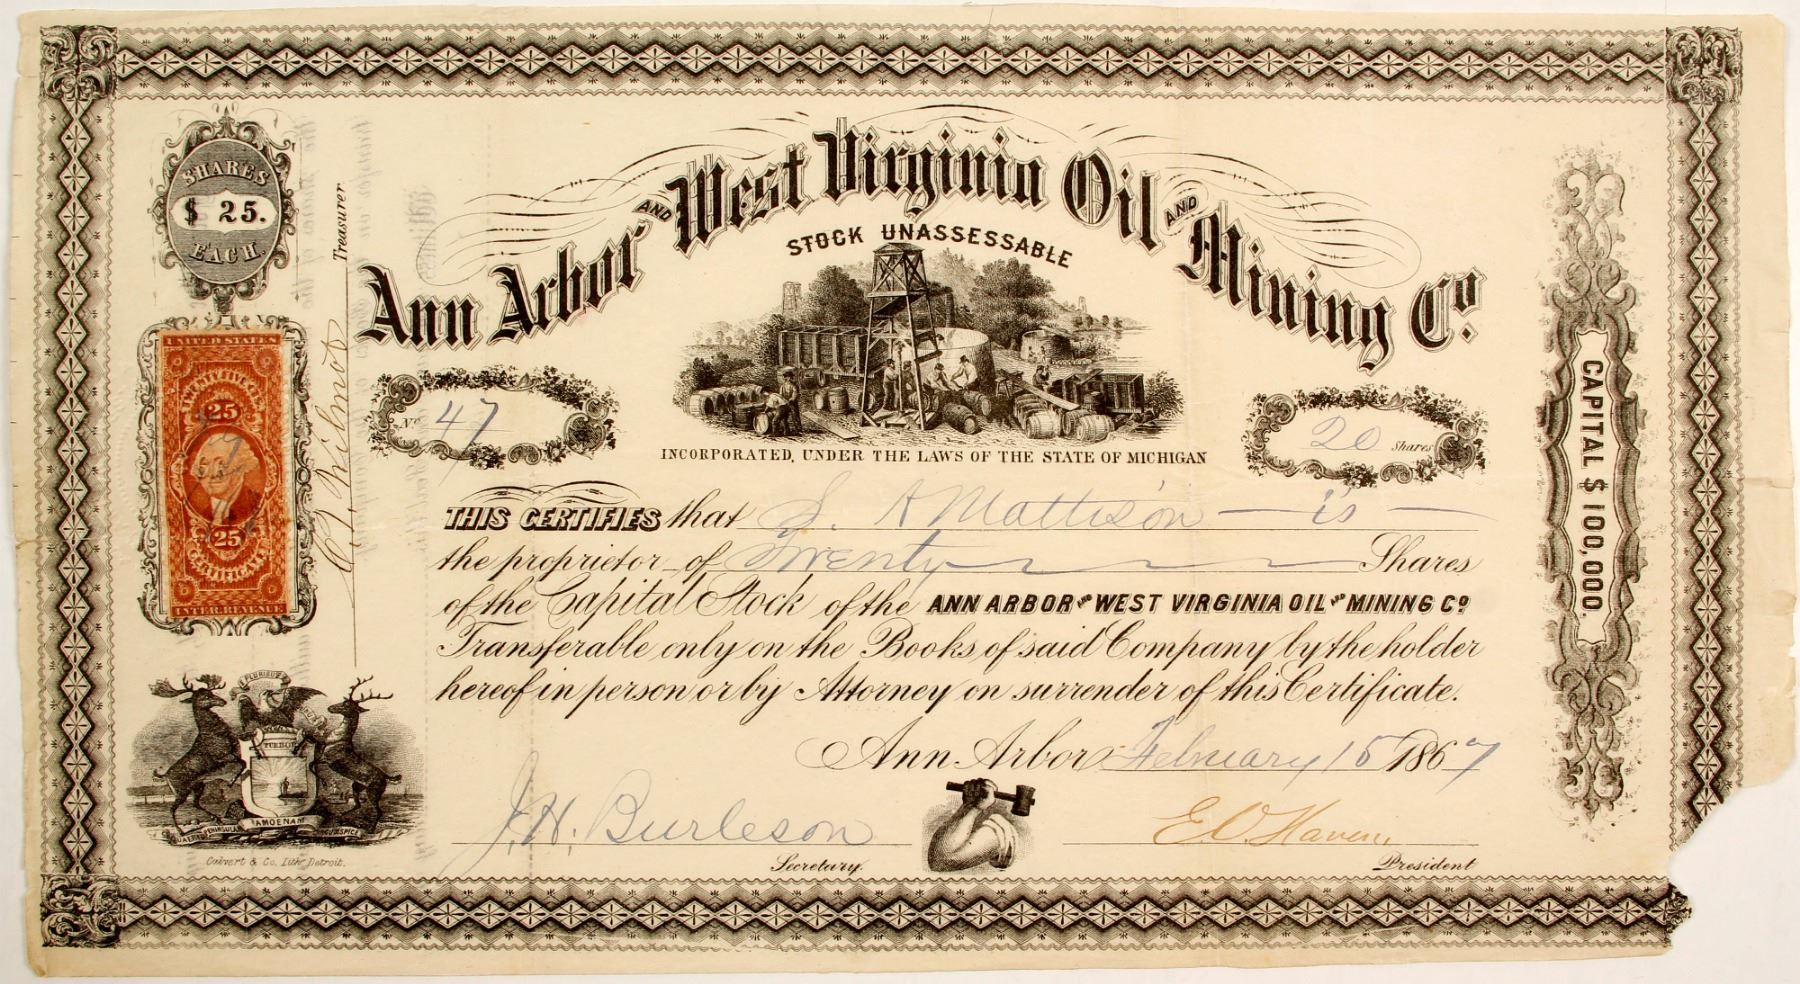 SHARES
$ 25.
EACH.
Treasurer
Ann Arbor AND West Virginia Oil AND Mining Co.
STOCK UNASSESSABLE
No 47
20 Shares
INCORPORATED, UNDER THE LAWS OF THE STATE OF MICHIGAN
UNITED STATES
TWENTY FIVE CTS.
25
25
CERTIFICATE
INTER. REVENUE
THIS CERTIFIES that S. A Mattison is
the proprietor of Twenty Shares
of the Capital Stock of the ANN ARBOR AND WEST VIRGINIA OIL AND MINING CO.
Transferable only on the Books of said Company by the holder
hereof in person or by Attorney on surrender of this Certificate.
Ann Arbor February 15 1867
J. H. Burleson
Secretary.
E. O. Haven,
President
CAPITAL $ 100,000.
TUEBOR
AMOENAM
Calvert & Co. Lith. Detroit.